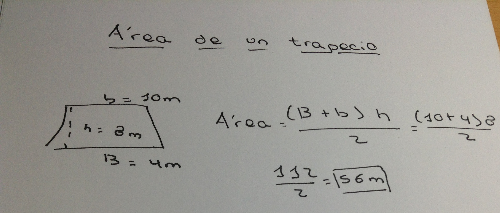 Área de un trapecio
b = 10m
h = 8m
B = 4m
Área = (B + b) h / 2 = (10+4) 8 / 2
112 / 2 = 56 m